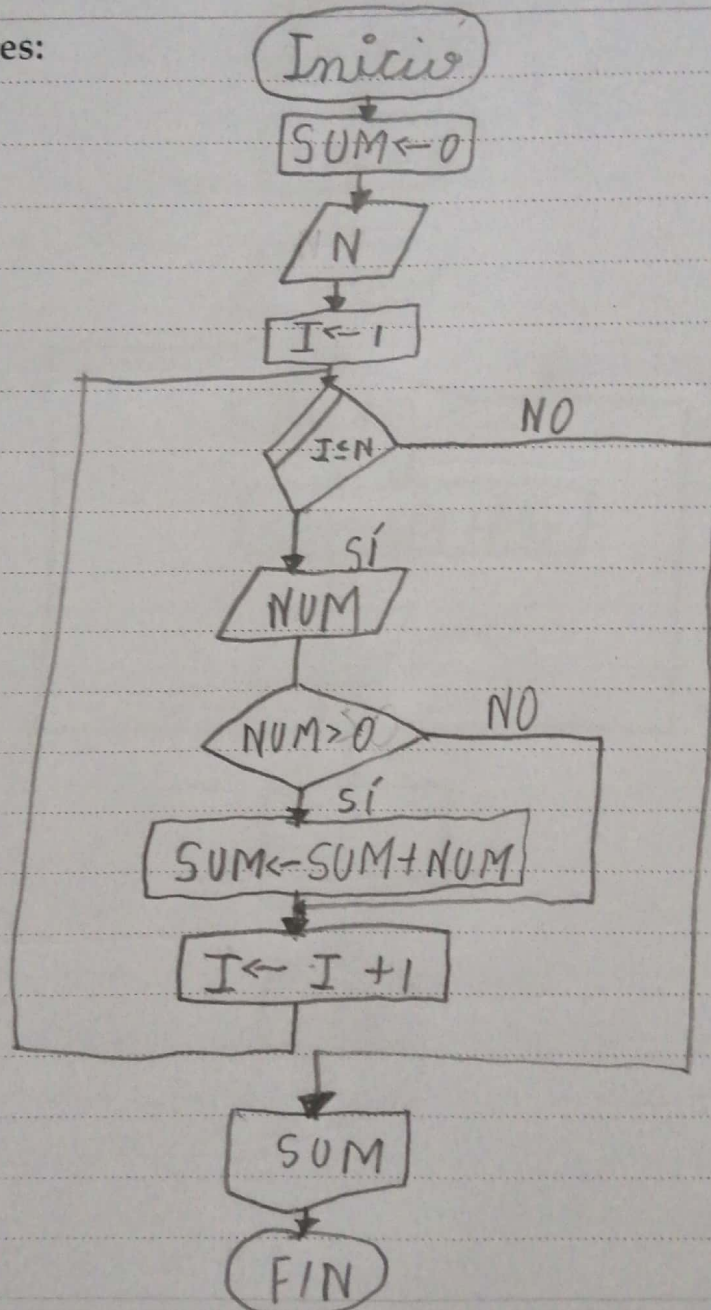 es:
Inicio
SUM←0
N
I←1
I≤N
NO
SÍ
NUM
NUM>0
NO
SÍ
SUM←SUM+NUM
I← I +1
SUM
FIN